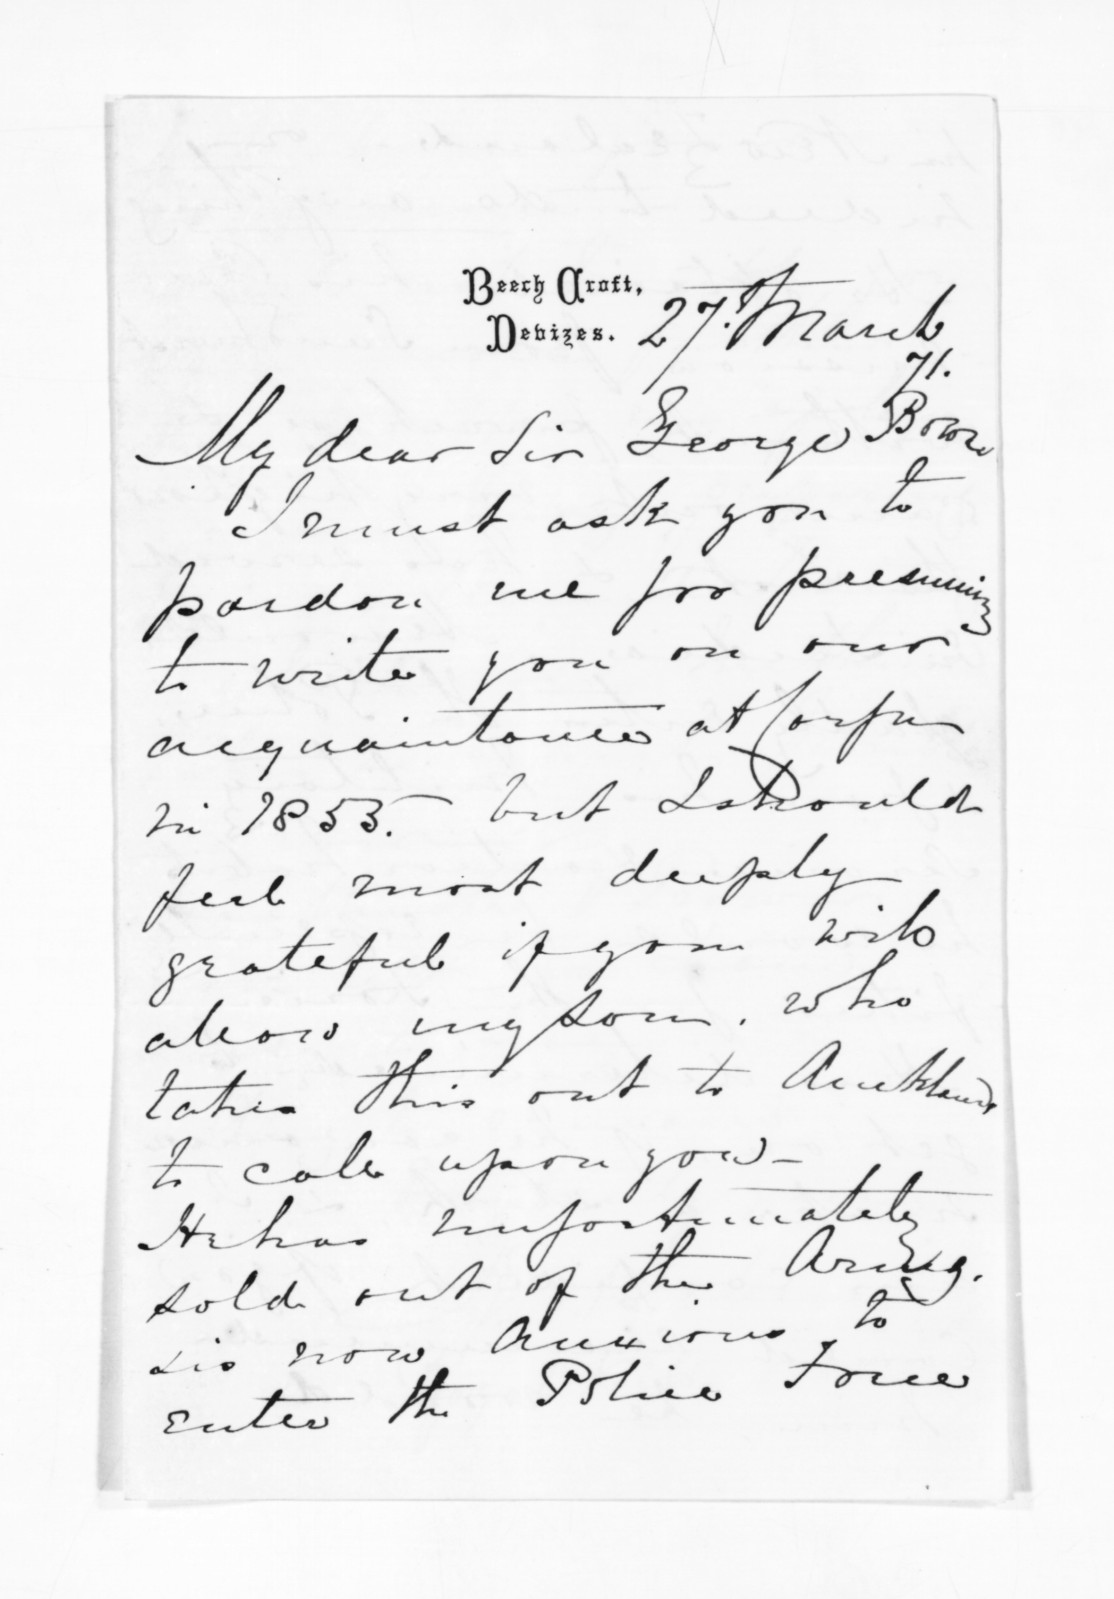 Beech Croft,
Devizes. 27th March
71.
My dear Sir George Bowen
I must ask you to
pardon me for presuming
to write you on our
acquaintance at Corfu
in 1853. but I should
feel most deeply
grateful if you will
allow my son, who
takes this out to Auckland
to call upon you—
He has unfortunately
sold out of the Army.
& is now anxious to
enter the Police Force